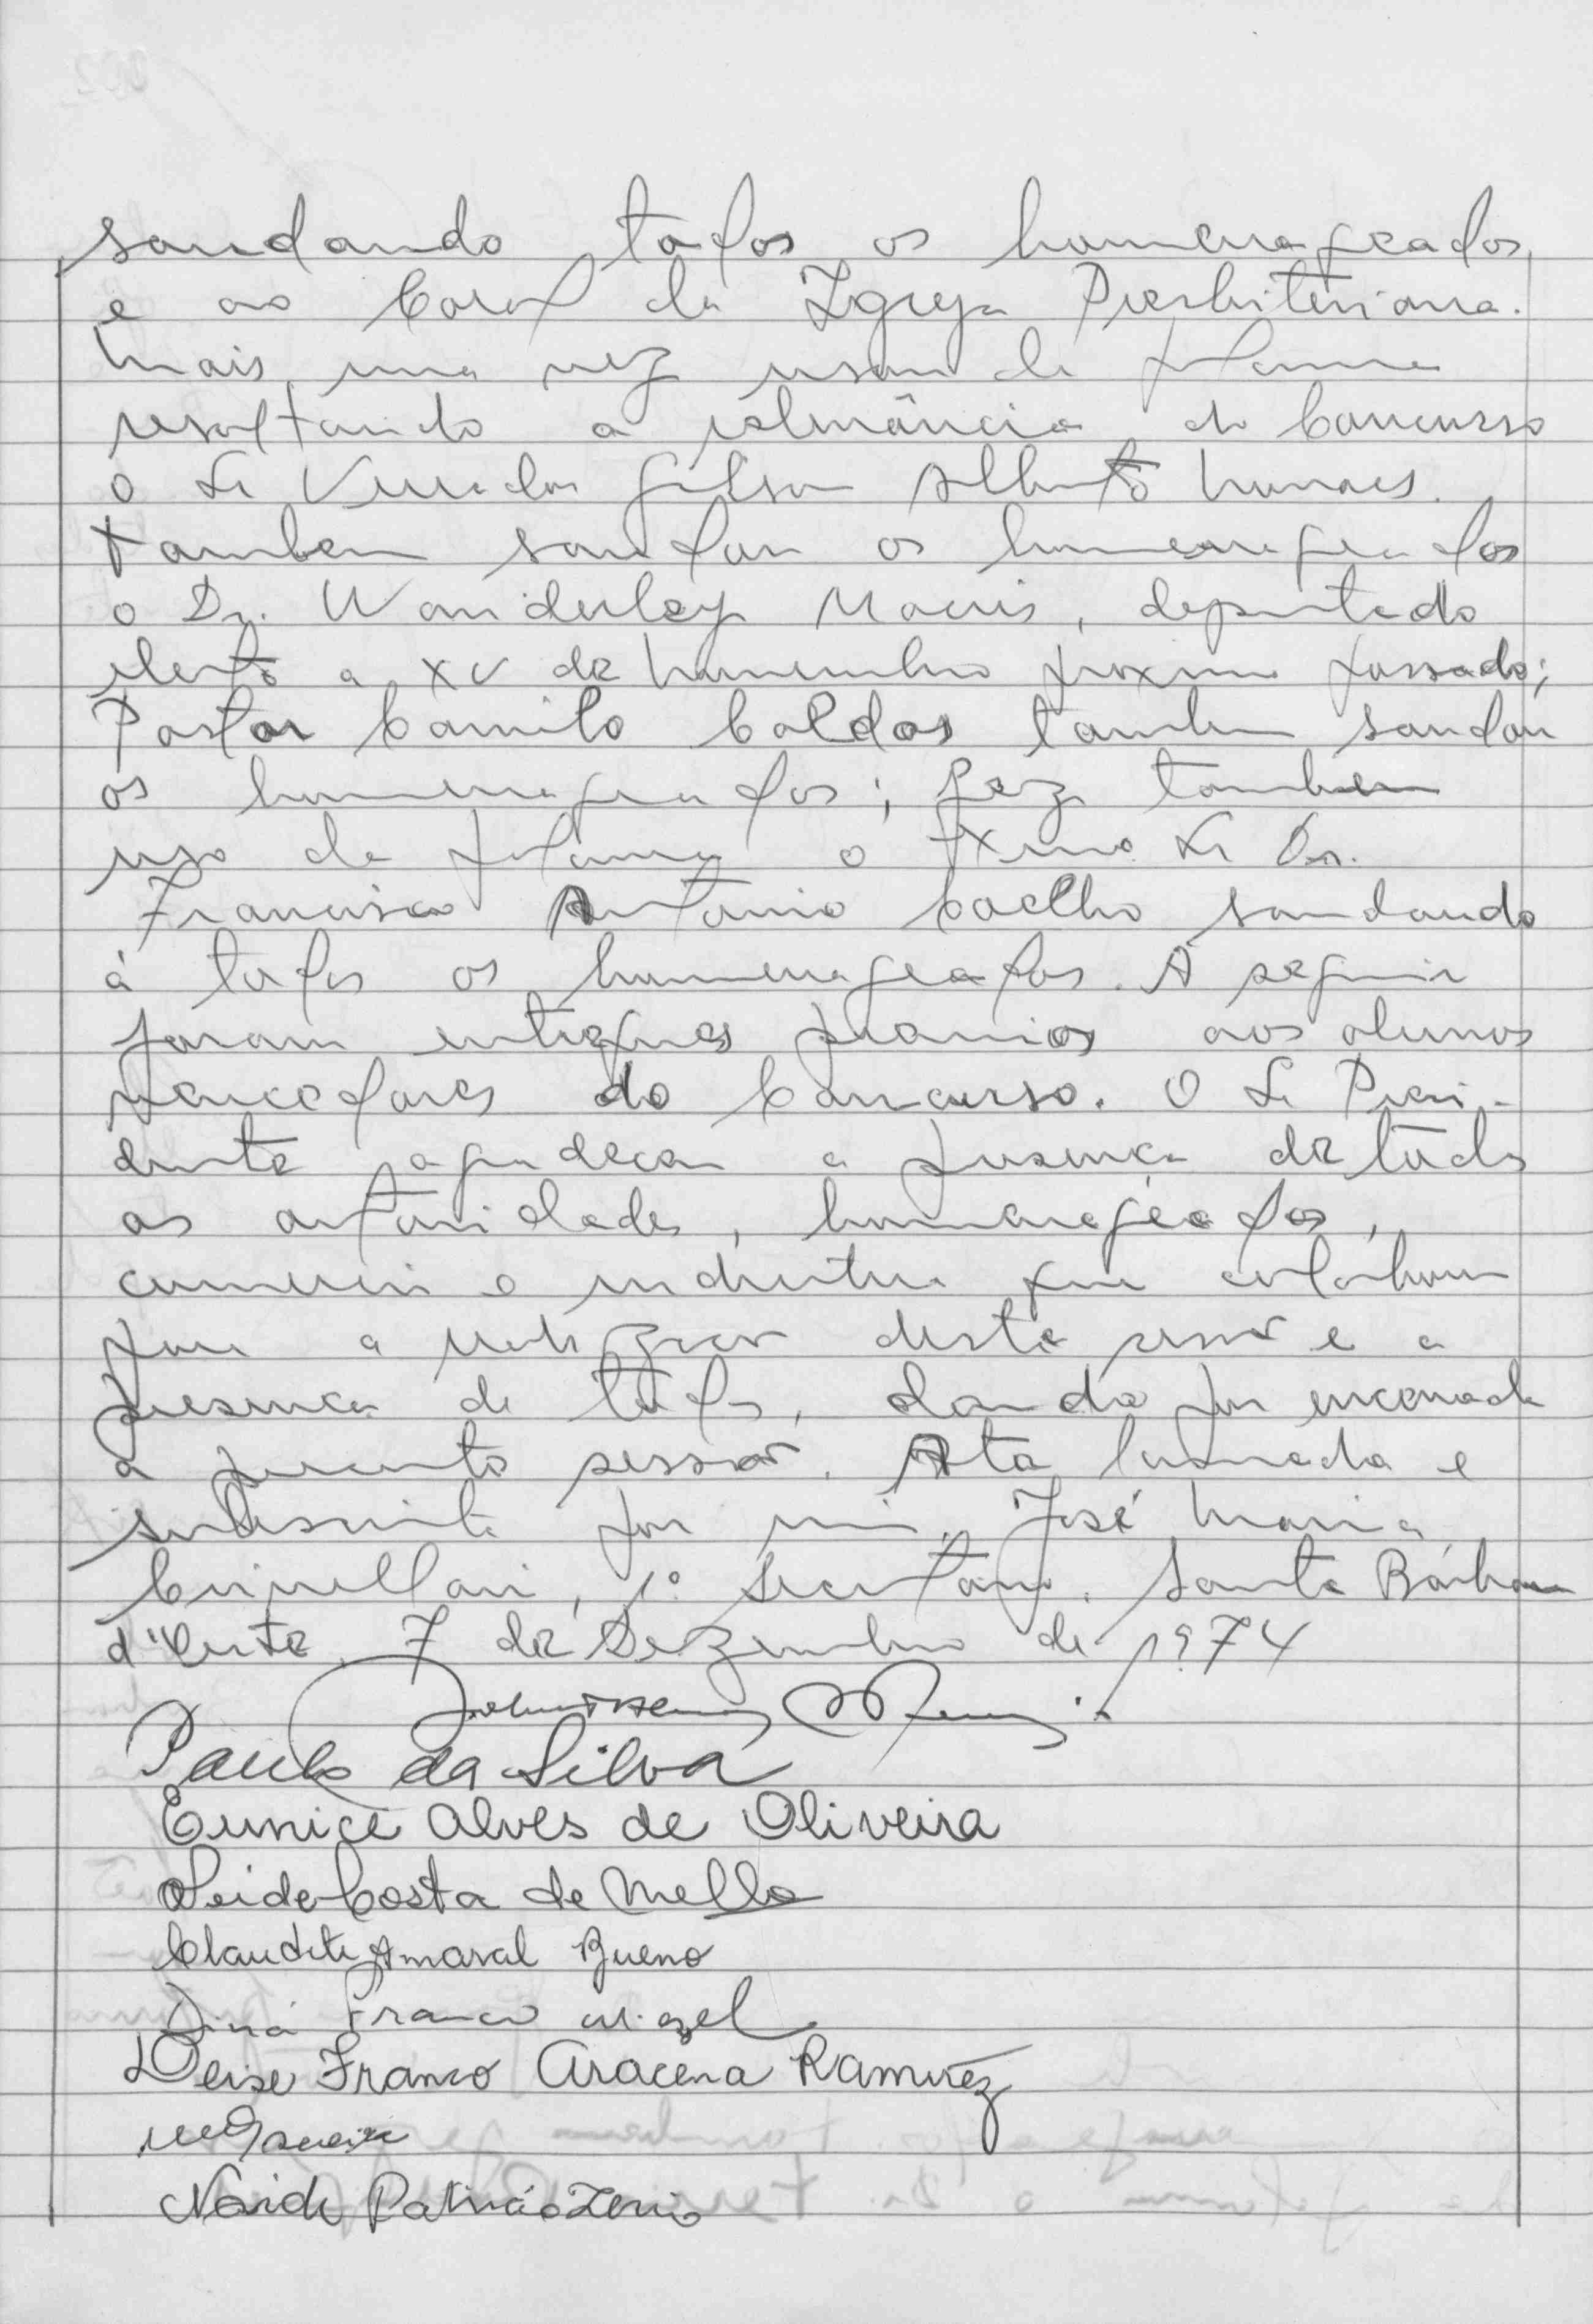 saudando todos os homenageados
e ao Coral da Igreja Presbiteriana.
Mais uma vez usou da palavra
resaltando a relevância do Concurso
o Sr Vereador Gilson Alberto Novaes.
Tambem saudou os homenageados
o Dr. Wanderley Macris, deputado
eleito a XV de Novembro proximo passado;
Pastor Camilo Caldas tambem saudou
os homenageados; fez tambem
uso da palavra o Exmo Sr Dr.
Francisco Antonio Coelho saudando
á todos os homenageados. A seguir
foram entregues premios aos alunos
vencedores do Concurso. O Sr Presi-
dente agradeceu a presença de todas
as autoridades, homenageados,
comercio e industria que colaboram
para a realização desta sessão e a
presença de todos, dando por encerrada
a presente sessão. Ata lavrada e
subescrita por mim, José Maria
1º Secretario. Santa Bárbara
d'Oeste, 7 de Dezembro de 1974
Paulo da Silva
Eunice Alves de Oliveira
Leide Costa de Mello
Claudete Amaral Bueno
Diná Franco
Deise Franco Aracena Ramirez
Neide Patricio